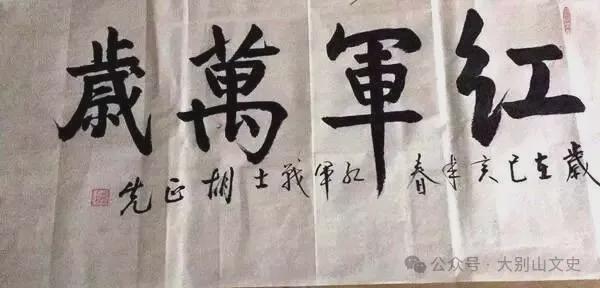 红軍萬歲
歲在己亥季春 红军战士胡正先
公众号·大别山文史